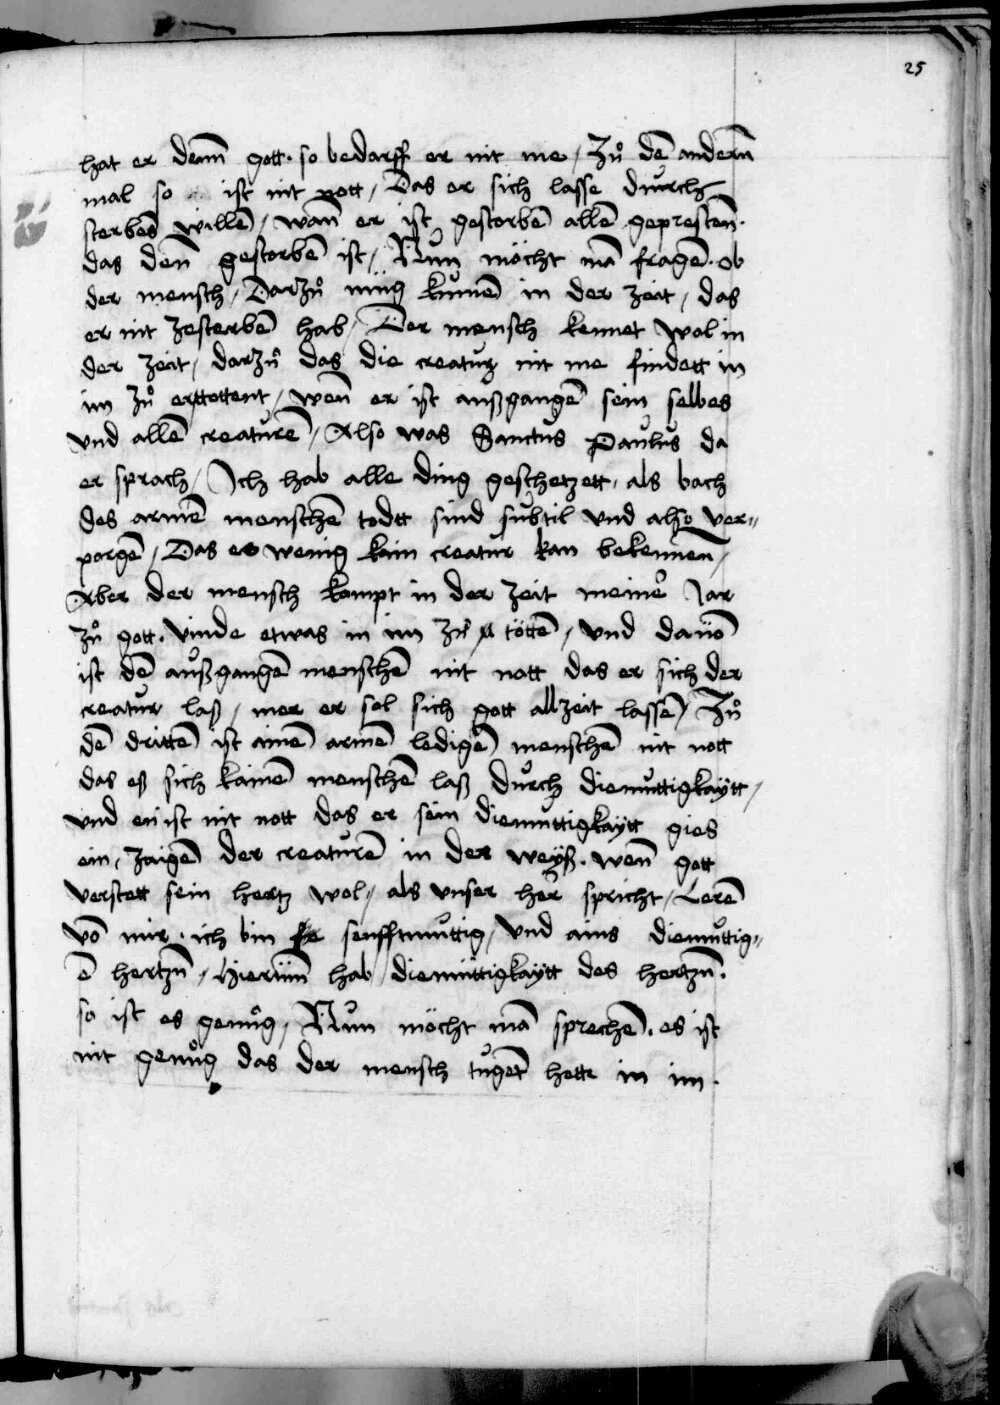 25
hat er denn̄ gott · so bedarff er nit me / Zů dē andernn
mal so ist nit nott / Das er sich lasse durch
sterbēs willē / wan̄ er ist gestorbē allē geprestēn ·
das dēn gestorbē ist / Nun möcht mā fragē · ob
der mensch / Darzů müg kumē in der zeit / das
er nit zesterbē hab / Der mensch kennet wol in
der zeit / darzů das die creatur nit me findett in
im zů erttottent / wen̄ er ist außgangē sein selbes
vnd allē creaturē / Also was Sanctus Paulus da
er sprach / Ich hab alle ding geschetzett · als bach
des armē menschē todtt sind subtil vnd also ver„
porgē / Das es wenig kain creatur kan bekennen /
Aber der mensch kompt in der zeit meiner Jar
zů gott · vinde etwas in im zů töttē / vnd dauō
ist dē außgangē menschē nit nott das er sich der
creatur laß / mer er sol sich gott allzeit lassē / Zů
dē drittē ist ainē armē ledigē menschē nit nott
das eß sich kainē menschē laß durch diemuttigkaytt /
vnd ist nit nott das er sein diemuttigkaytt
ein / zaigē der creaturē in der weyß · wen̄ gott
verstett sein hertz wol / als vnser her spricht / Lerē
vō mir · ich bin senfftmuttig / vnd ains diemuttig„
ē hertzn̄ / Hierum̄ hab diemuttigkaytt des hertzn̄ ·
so ist es genůg / Nun möcht mā sprechē · es ist
nit genůg das der mensch tugēt hett in im ·